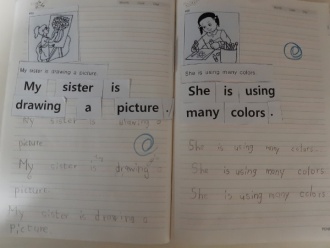 My sister is drawing a picture.
My sister is
drawing a picture.
My sister is drawing a
picture
My sister is drawing
picture.
My sister is drawing a
Picture
She is using many colors.
She is using
many colors.
She is using many colors.
She is using many colors
She Is using many colors